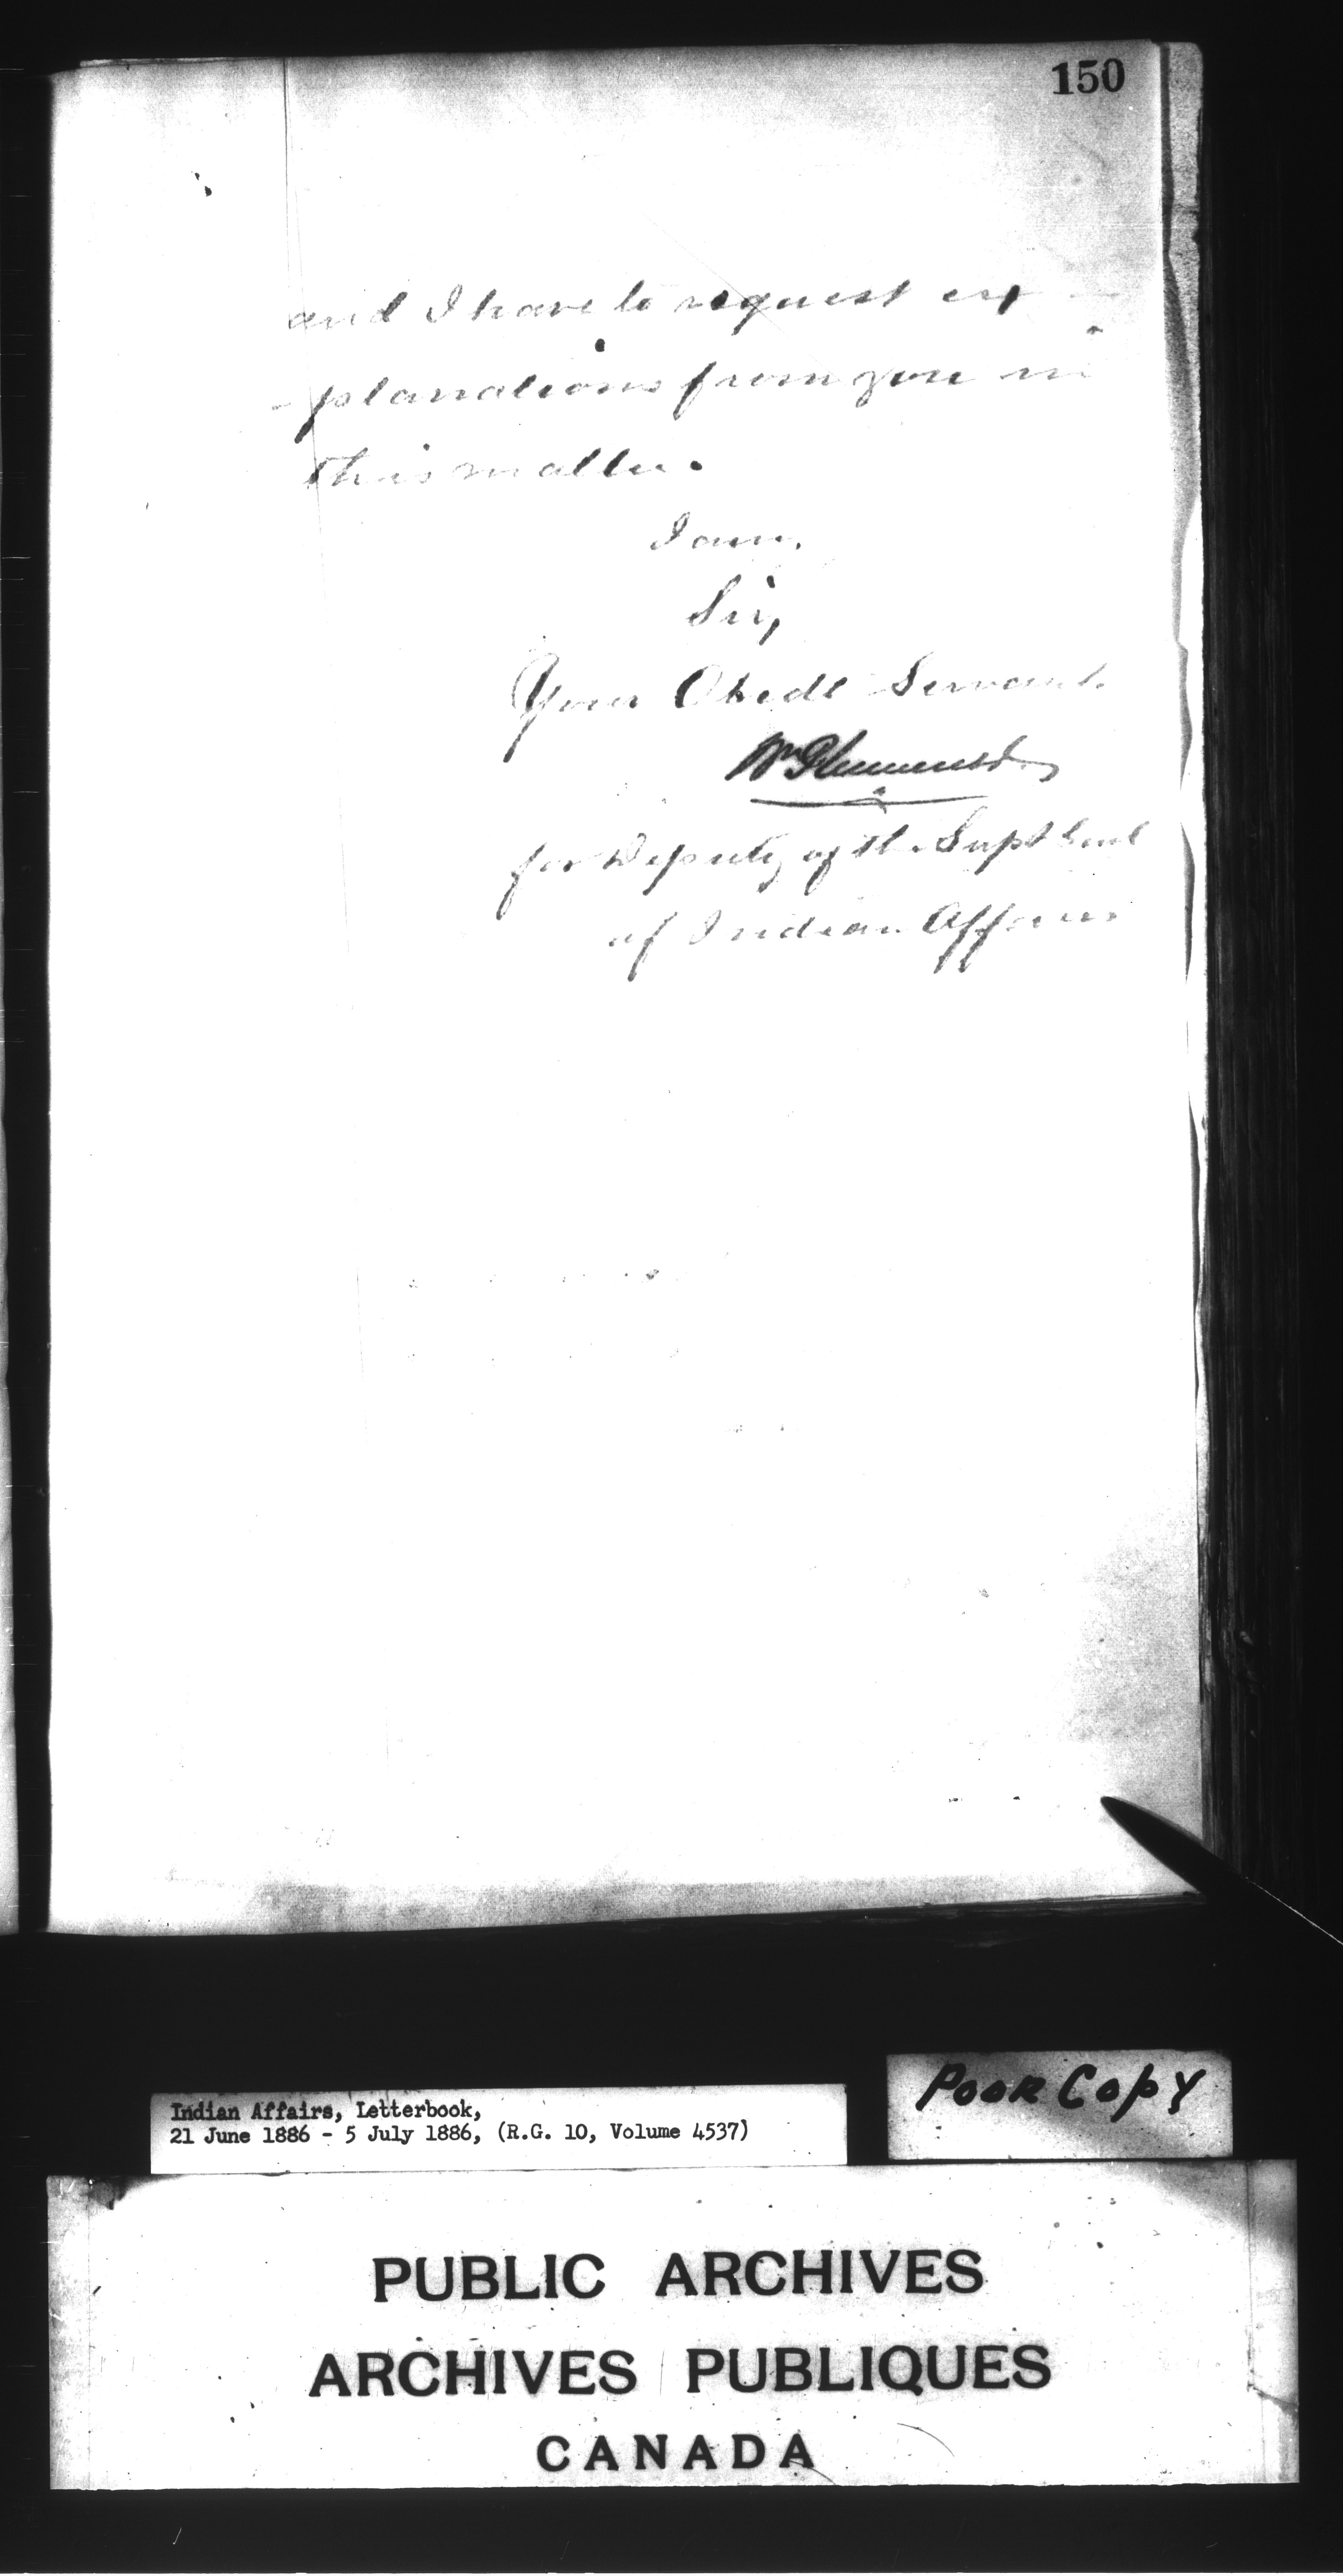 150
and I have to request ex-
-planations from you in
this matter.
I am,
Sir,
Your Obedt Servant.
Wm Plummer
for Deputy of the Supt Genl
of Indian Affairs
Poor Copy
Indian Affairs, Letterbook,
21 June 1886 - 5 July 1886, (R.G. 10, Volume 4537)
PUBLIC ARCHIVES
ARCHIVES PUBLIQUES
CANADA